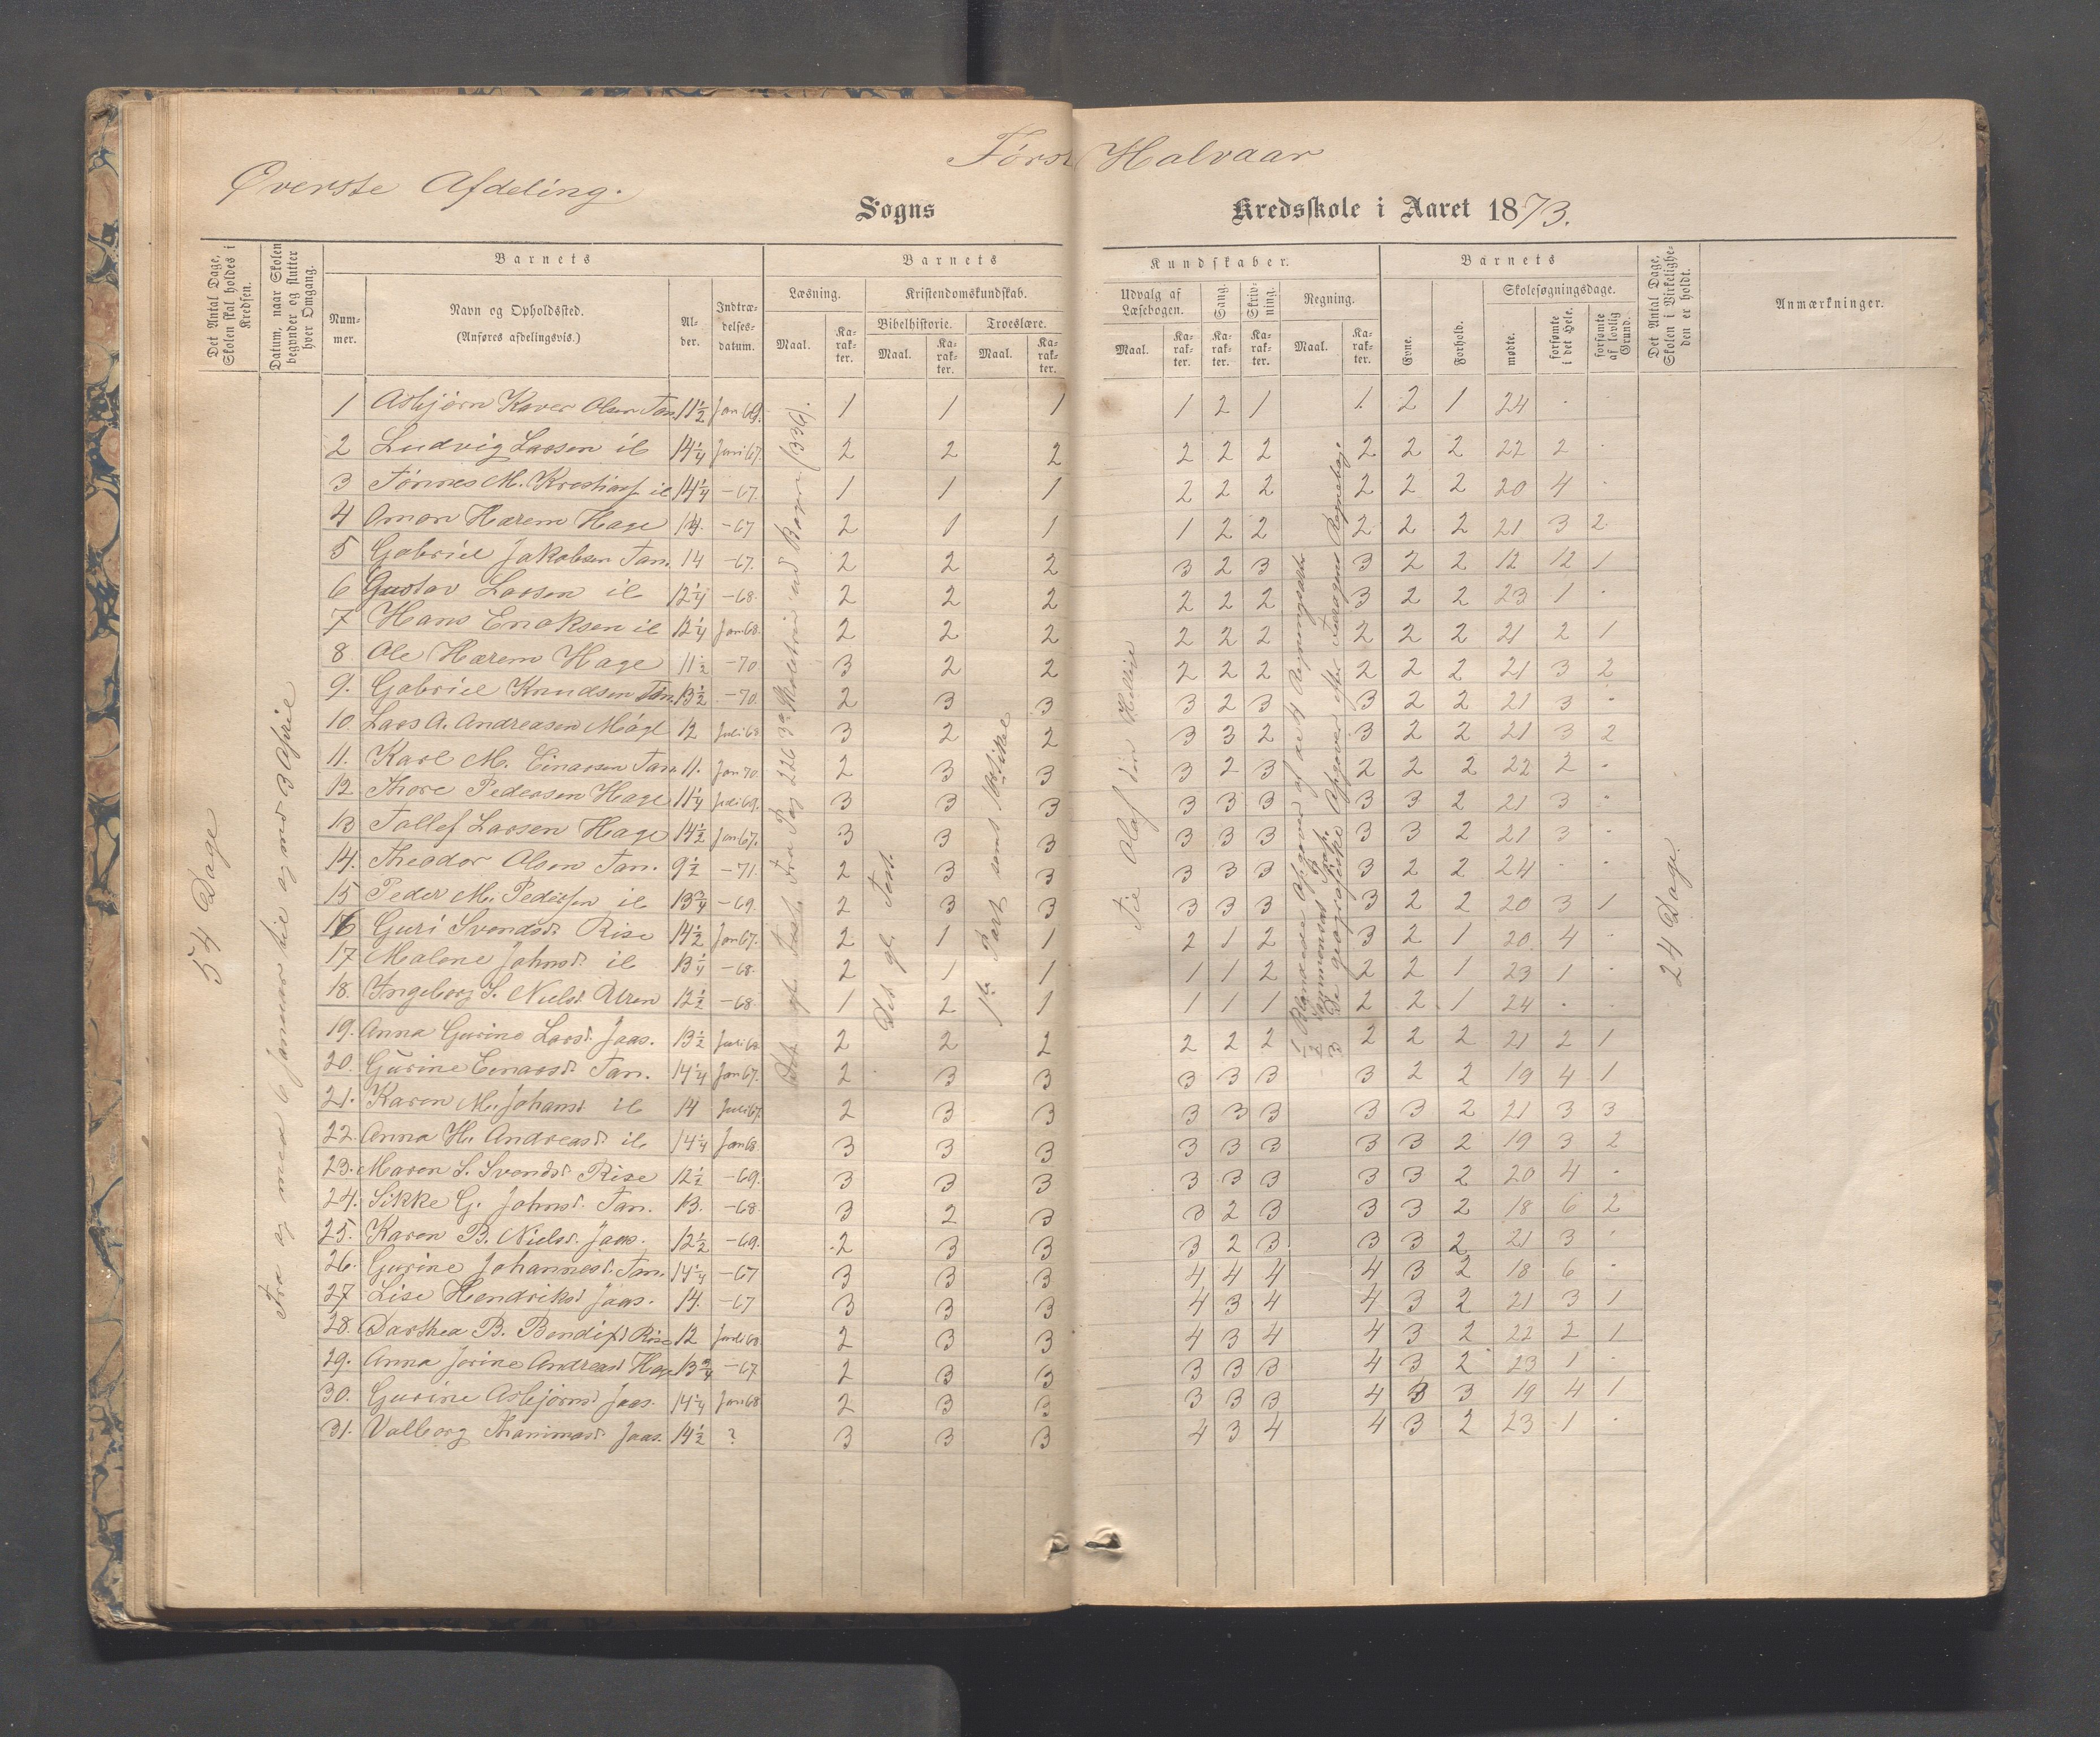 Først Halvaar
Øverste Afdeling.
Sogns Kredsskole i Aaret 1873.
Det Antal Dage, Skolen skal holdes i Kredsen.
Datum, naar Skolen begynder og slutter hver Omgang.
Barnets
Nummer.
Navn og Opholdssted.
(Anføres afdelingsvis.)
Alder.
Indtrædelsesdatum.
Barnets Kundskaber.
Læsning.
Maal.
Karakter.
Kristendomskundskab.
Bibelhistorie.
Maal.
Karakter.
Troeslære.
Maal.
Karakter.
Udvalg af Læsebogen.
Maal.
Karakter.
Sang.
Karakter.
Skrivning.
Karakter.
Regning.
Maal.
Karakter.
Barnets
Evne.
Forhold.
Skolesøgningsdage.
mødte.
forsømte i det Hele.
forsømte af lovlig Grund.
Det Antal Dage, Skolen i Virkeligheden er holdt.
Anmærkninger.
54 Dage
Fra og med 6 Januar til og med 3 April
24 Dage.
1 Asbjørn Kaver Olsen Tan. 11½ Jan 69. 1 1 1 1 2 1 1. 2 1 24 . .
2 Ludvig Larsen il 14¼ Juni 67. 2 2 2 2 2 2 2 2 2 22 2 .
3 Tønnes M. il 14¼ -67. 1 1 1 2 2 2 2 2 2 20 4 .
4 Omon Hærem Hage 14. -67 2 1 1 1 2 2 2 2 2 21 3 2
5 Gabriel Jakobsen Tan. 14 -67. 2 2 2 3 2 3 3 2 2 12 12 1
6 Gustav Larsen il 12¼ -68. 2 2 2 2 2 2 3 2 2 23 1 .
7 Hans Enoksen il 12¼ Jan 68. 2 2 2 2 2 2 2 2 2 21 2 1
8. Ole Hærem Hage 11½ -70 3 2 2 2 2 2 2 2 2 21 3 2
9. Gabriel Knudsen Tan. 13½ -70. 2 3 3 3 2 3 3 2 2 21 3 .
10. Lars A. Andreasen 12 Juli 68 3 2 2 3 3 2 3 2 2 21 3 2
11. Karl M. Einarsen Tan. 11. Jan 70. 2 3 3 3 2 3 2 2 2 22 2 .
12 Thore Pedersen Hage 11¼ Juli 69. 3 3 3 3 3 3 3 3 2 21 3 .
13 Tallef Larsen Hage 14½ Jan 67. 3 3 3 3 3 3 3 3 2 21 3 .
14. Theodor Olsen Tan. 9½ -71. 2 3 3 3 3 3 3 2 2 24 . .
15 Peder M. Pedersen il 13¾ -69. 2 3 3 3 3 3 3 2 2 20 3 1
16 Guri Svendsd. Rise 14½ Jan 67. 2 1 1 2 1 2 3 2 1 20 4 .
17 Malene Johnsd. il 13¼ -68. 2 1 1 1 1 2 2 2 1 23 1 .
18. Ingeborg S. Nielsd. 12½ -68. 1 2 1 1 1 1 2 2 1 24 . .
19. Anna Gurine Larsd. Jaas. 13½ Juli 68 2 2 2 2 2 2 2 2 2 21 2 1
20. Gurine Einarsd. Tan. 14¼ Jan 67. 2 3 3 3 3 3 3 2 2 19 4 1
21. Karen M. Johansd il 14 Juli 67. 2 3 3 3 3 3 3 3 2 21 3 3
22. Anna H. Andreasd. il 14¼ Jan 68. 3 3 3 3 3 3 3 3 2 19 3 2
23. Maren S. Svendsd. Rise 12½ -69. 3 3 3 3 3 3 3 3 2 20 4 .
24. Sikke G. Johnsd. Tan. 13. -68. 3 2 3 3 2 3 3 3 2 18 6 2
25. Karen B. Nielsd. Jaas. 12½ -69. 2 3 3 3 2 3 3 3 2 21 3 .
26. Gurine Johannesd. Tan. 14¼ -67 3 3 3 4 4 4 4 3 2 18 6 .
27 Lise Hendriksd Jaas. 14. -67 3 3 3 4 3 4 4 3 2 21 3 1
28. Darthea B. Bendixd Rise 12 Juli 68 2 3 3 4 3 4 4 3 2 22 2 1
29. Anna Jorine Andreasd Hage 13¾ -67 2 3 3 3 3 3 4 3 2 23 1 .
30. Gurine Asbjørnsd Jaas. 14¼ Jan 68 2 3 3 3 3 3 4 3 3 19 4 1
31. Valborg Jaas. 14½ ? 3 3 3 4 3 4 4 3 2 23 1 .
Fra Pag 226 Bogen (336).
Det gl. Test.
1ste Part samt 10de
Til Olaf den Hellie
1 Blandede Opgaver af de 4 Regningsarter
2 Sammensat
3 De geografiske Opgaver efter Regnebog